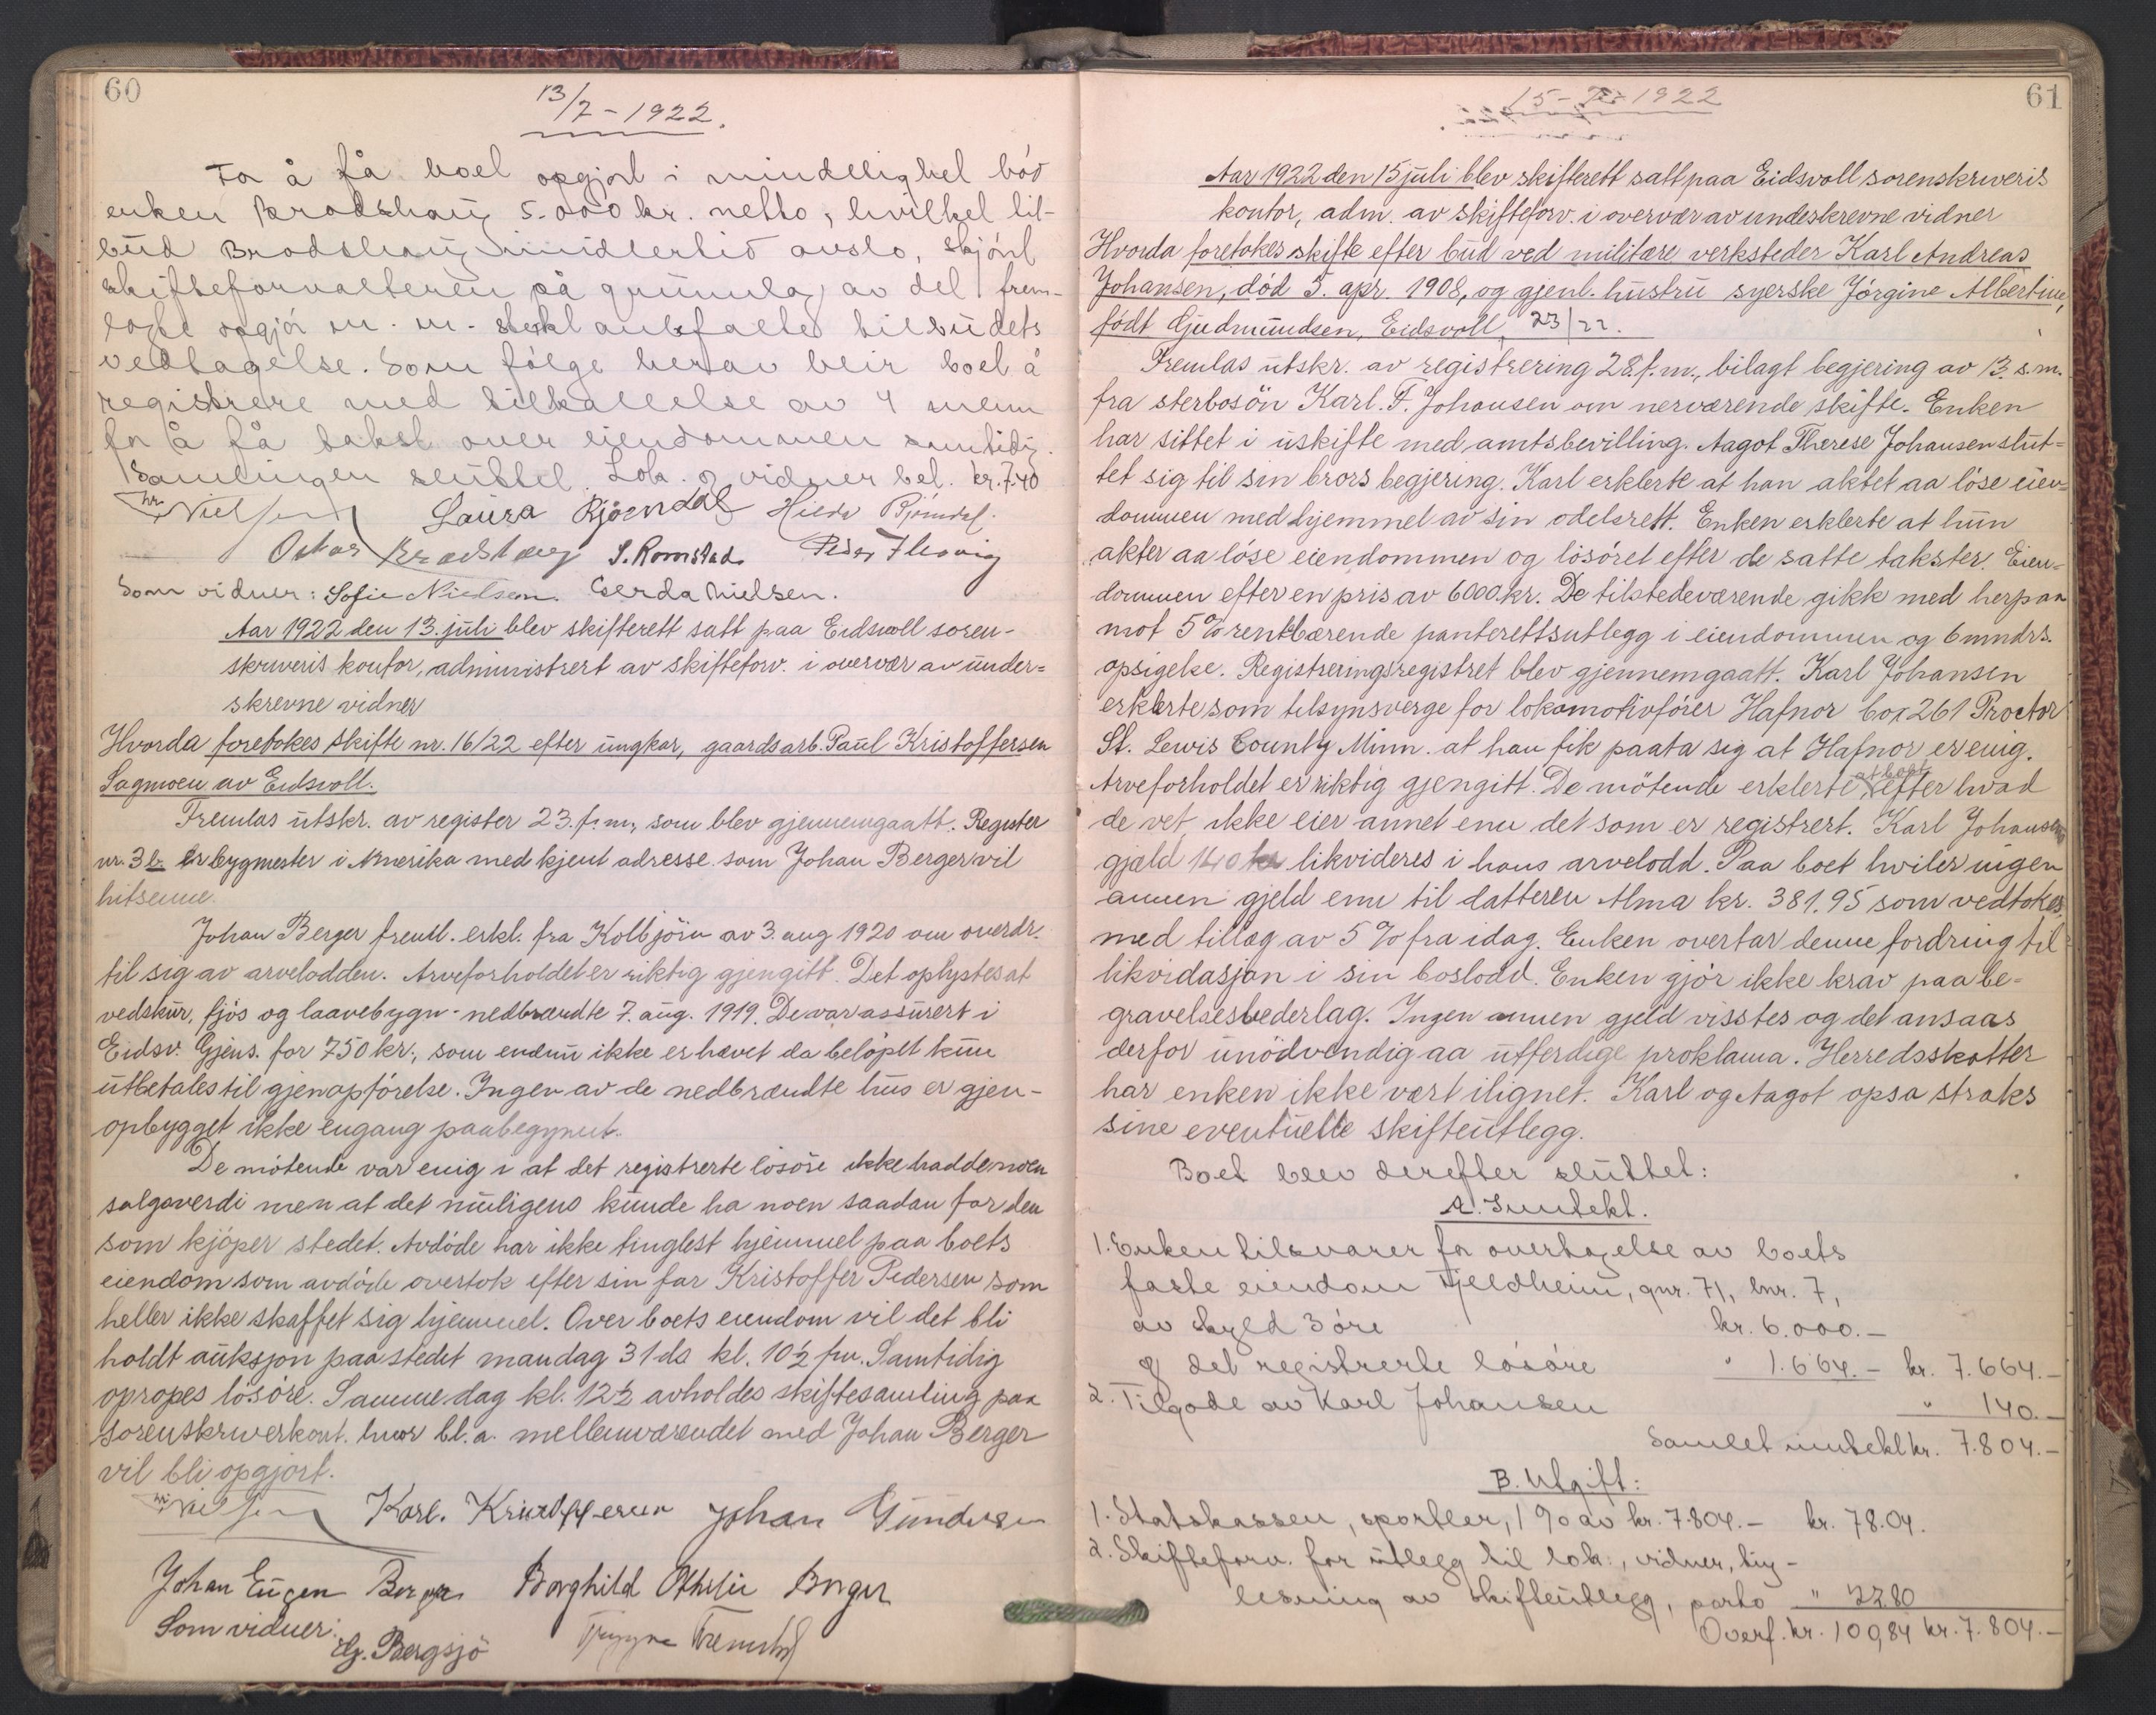 60
13/7-1922.
For å få boet opgjort i mindelighet bød
enken Brodshaug 5.000 kr. netto, hvilket til-
bud Brodshaug imidlertid avslo, skjønt
skifteforvalteren på grunnlag av det frem-
lagte opgjør m.m. sterkt anbefalte tilbudets
vedtagelse. Som følge herav blir boet å
registrere med tilkallelse av 4 menn
for å få takst over eiendommen samtidig.
Samlingen sluttet. Lok. og vidner bet. kr. 7.40
Nielsen Laura Bjørndal Hilda Bjørndal.
Oskar Brodshaug S. Romstad
Som vidner: Sofie Nielsen. Gerda Nielsen.
Aar 1922 den 13. juli blev skifterett satt paa Eidsvoll soren-
skriveris kontor, administrert av skifteforv. i overvær av under=
skrevne vidner
Hvorda foretokes skifte nr. 16/22 efter ungkar, gaardsarb. Paul Kristoffersen
Sagmoen av Eidsvoll.
Fremlas utskr. av register 23. f.m., som blev gjennemgaatt. Register
nr. 3 b er bygmester i Amerika med kjent adresse som Johan Berger vil
hitsenne.
Johan Berger freml. erkl. fra Kolbjörn av 3. aug 1920 om overdr.
til sig av arvelodden. Arveforholdet er riktig gjengitt. Det oplystes at
vedskur, fjös og laavebygn. nedbrændte 7. aug. 1919. De var assurert i
Eidsv. Gjens. for 750 kr., som endnu ikke er hævet da belöpet kun
utbetales til gjenopförelse. Ingen av de nedbrændte hus er gjen-
opbygget ikke engang paabegynnt.
De mötende var enig i at det registrerte lösöre ikke hadde noen
salgsverdi men at det muligens kunde ha noen saadan for den
som kjöper stedet. Avdöde har ikke tinglest hjemmel paa boets
eiendom som avdöde overtok efter sin far Kristoffer Pedersen som
heller ikke skaffet sig hjemmel. Over boets eiendom vil det bli
holdt auksjon paa stedet mandag 31 ds kl. 10½ fm. Samtidig
opropes lösöre. Samme dag kl. 12½ avholdes skiftesamling paa
sorenskriverkont. hvor bl.a. mellemværendet med Johan Berger
vil bli opgjort.
Nielsen Karl. Kristoffersen Johan Gundersen
Johan Eugen Berger Borghild Othelie Berger
Som vidner:
Hj. Bergsjö Trygve
61
15-7-1922
Aar 1922 den 15 juli blev skifterett satt paa Eidsvoll sorenskriveris
kontor, adm. av skifteforv. i overvær av undeskrevne vidner
Hvorda foretokes skifte efter bud ved militære verksteder Karl Andreas
Johansen, död 5. apr. 1908, og gjenl. hustru syerske Jörgine Albertine,
födt Gjudmundsen, Eidsvoll, 23/22.
Fremlas utskr. av registrering 28. f.m., bilagt begjering av 13. s.m.
fra sterbosön Karl. F. Johansen om nerværende skifte. Enken
har sittet i uskifte med amtsbevilling. Aagot Therese Johansen slut=
tet sig til sin brors begjering. Karl erklerte at han aktet aa löse eien=
dommen med hjemmel av sin odelsrett. Enken erklerte at hun
akter aa löse eiendommen og lösöret efter de satte takster. Eien=
dommen efter en pris av 6000 kr. De tilstedeværende gikk med herpaa
mot 5% rentbærende panterettsutlegg i eiendommen og 6 mndrs.
opsigelse. Registreringsregistret blev gjennemgaatt. Karl Johansen
erklerte som tilsynsverge for lokomotivförer Hafnor box 261 Proctor
St. Lewis County Minn. at han fik paata sig at Hafnor er enig.
Arveforholdet er riktig gjengitt. De mötende erklerte at boet efter hvad
de vet ikke eier annet enn det som er registrert. Karl Johansens
gjæld 140 kr likvideres i hans arvelodd. Paa boet hviler ingen
annen gjeld enn til datteren Alma kr. 381.95 som vedtokes,
med tillæg av 5% fra idag. Enken overtar denne fordring til
likvidasjon i sin boslodd. Enken gjör ikke krav paa be-
gravelsesvederlag. Ingen annen gjeld visstes og det ansaas
derfor unödvendig aa utferdige proklama. Herredsskatter
har enken ikke vært ilignet. Karl og Aagot opsa straks
sine eventuelle skifteutlegg.
Boet blev derefter sluttet:
A. Inntekt.
1. Enken tilsvarer for overtagelse av boets
faste eiendom Fjeldheim, gnr. 71, bnr. 7,
av skyld 3 øre kr. 6.000.-
og det registrerte løsøre " 1.664.- kr. 7.664.-
2. Tilgode av Karl Johansen " 140.-
Samlet inntekt kr. 7.804.-
B. Utgift:
1. Statskassen, sportler, 1% av kr. 7.804.- kr. 78.04.
2. Skifteforv. for utlegg til lok., vidner, ting-
lesning av skifteutlegg, porto " 22.80
Overf. kr. 100,84 kr. 7.804.-